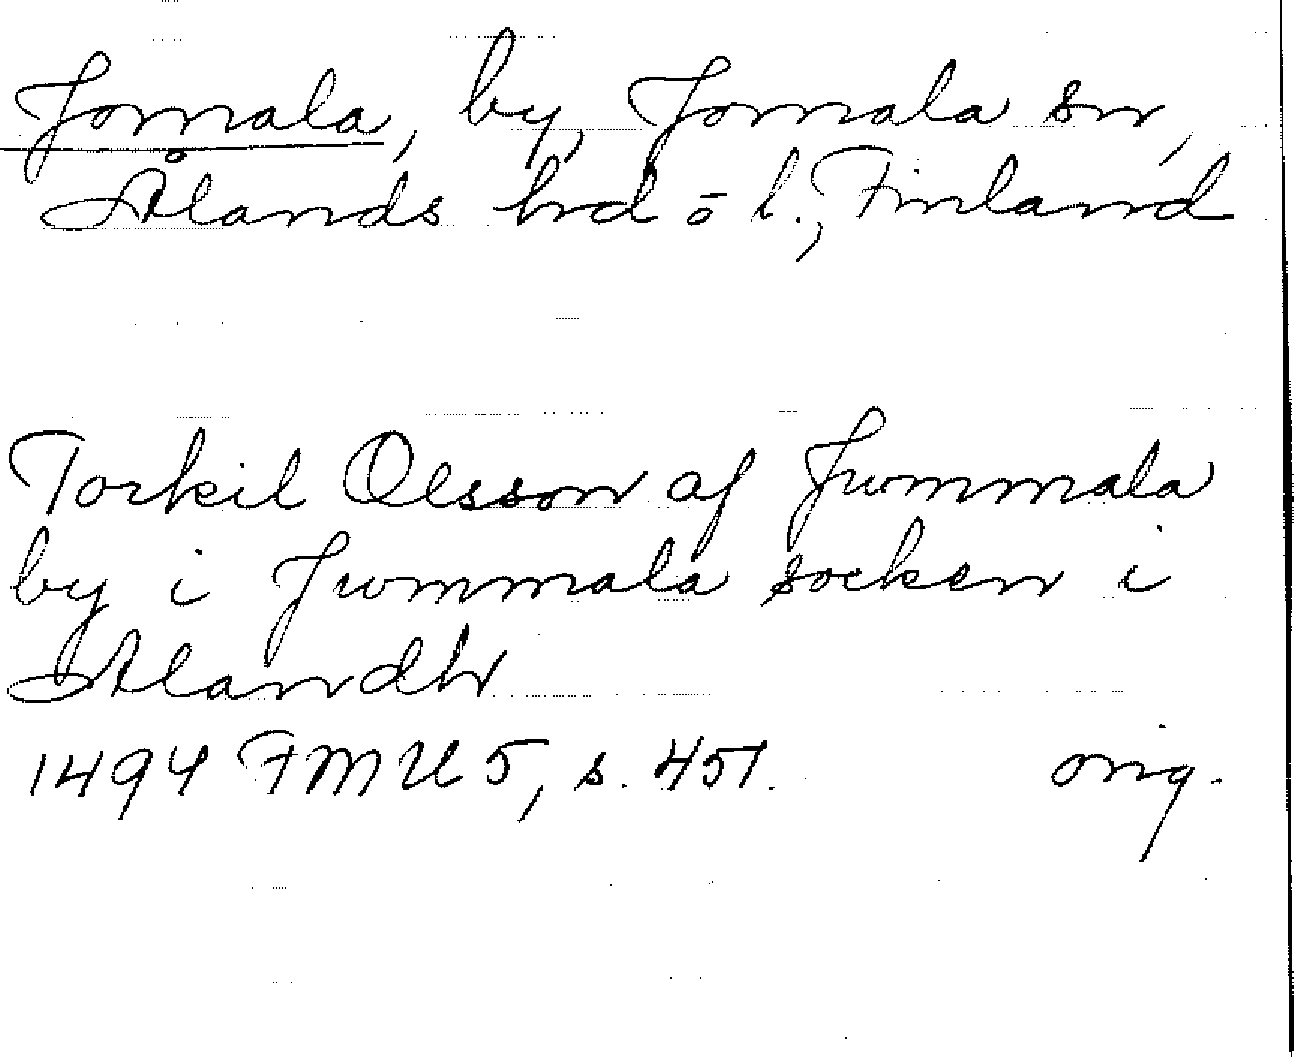 Jomala, by, Jomala sn,
Ålands hrd o l., Finland
Torkil Olsson af Jwmmala
by i Jwmmala socken i
Alandh
1494 FMU 5, s. 451. orig.